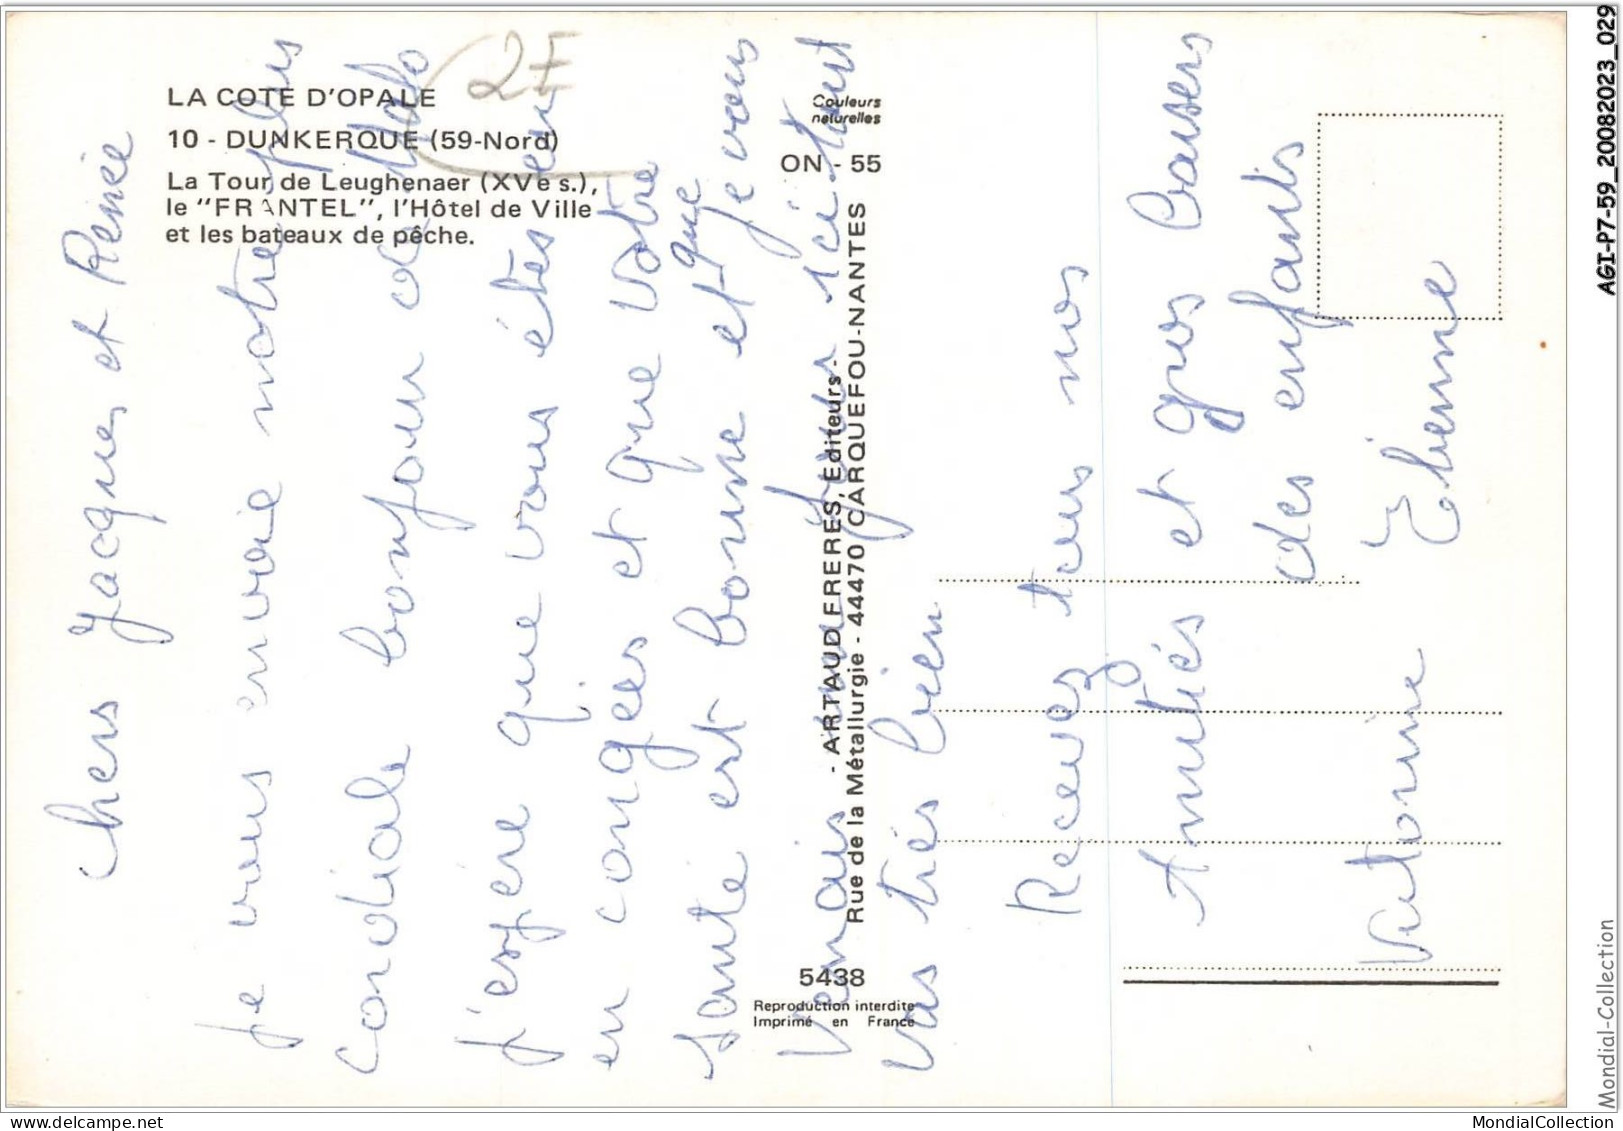 LA COTE D'OPALE
10 - DUNKERQUE (59-Nord)
La Tour de Leughenaer (XVe s.),
le "FRANTEL", l'Hôtel de Ville
et les bateaux de pêche.
2F
Couleurs
naturelles
ON - 55
- ARTAUD FRERES, Editeurs -
Rue de la Métallurgie - 44470 CARQUEFOU-NANTES
5438
Reproduction interdite
Imprimé en France
Chers Jacques et Renée
Je vous envoie notre plus
cordiale bonjour de Malo
J'espère que vous êtes en
en congées et que votre
santé est bonne et que je vous
Venais me jour ici tout
vas très bien
Recevez tous nos
Amitiés et gros baisers
des enfants
Victorine Etienne
AGI-P7-59_20082023_029
Mondial-Collection
MondialCollection